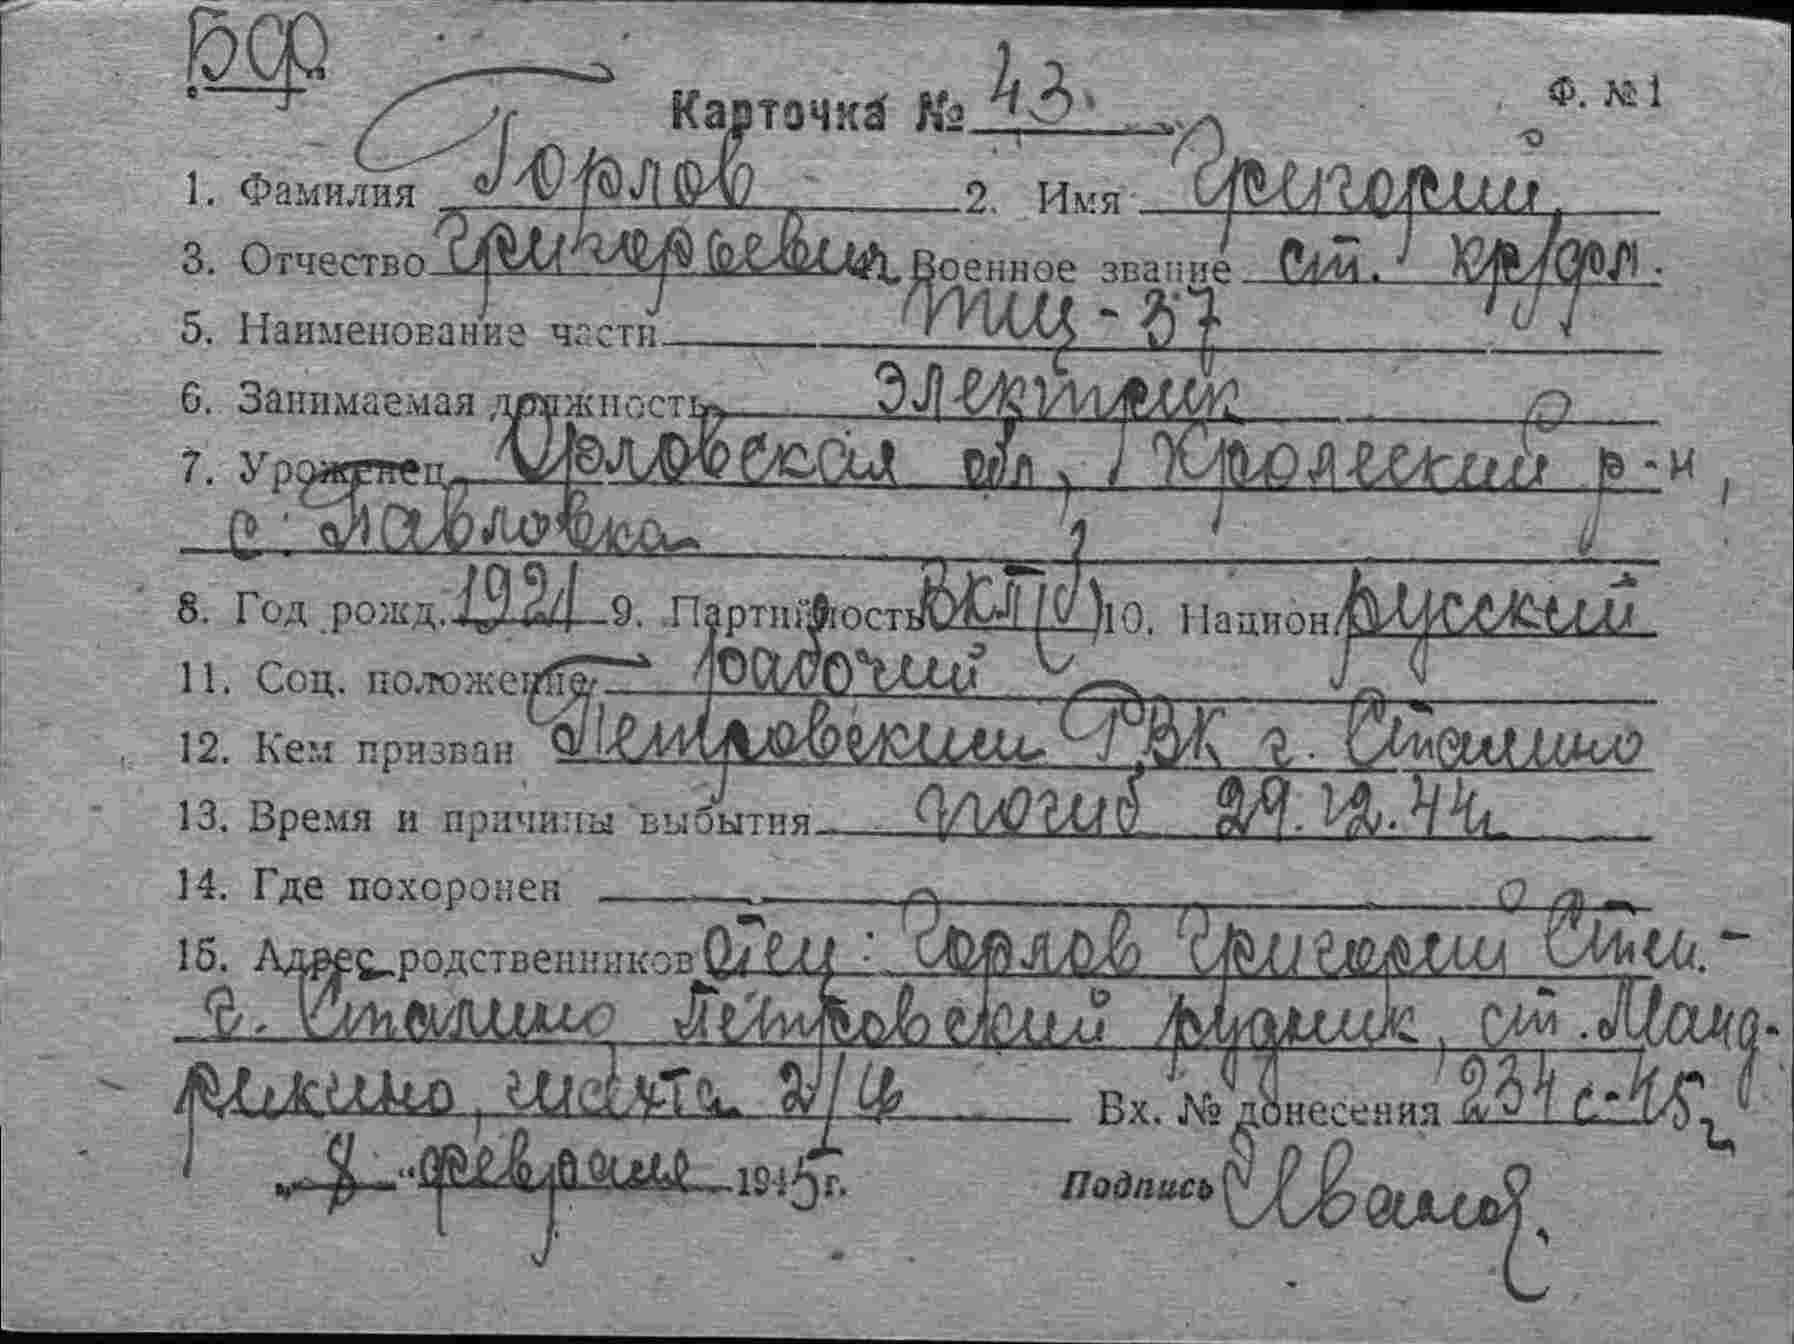 БФ
Карточка № 43. Ф. № 1
1. Фамилия Горлов 2. Имя Григорий
3. Отчество Григорьевич Военное звание ст. кр/фл.
5. Наименование части ТЩ-37
6. Занимаемая должность электрик
7. Уроженец Орловская обл, р-н,
с. Павловка
8. Год рожд. 1921 9. Партийность ВКП(б) 10. Национ. русский
11. Соц. положение рабочий
12. Кем призван Петровским РВК г. Сталино
13. Время и причины выбытия погиб 29.12.44г
14. Где похоронен
15. Адрес родственников отец: Горлов Григорий Степ.-
г. Сталино Петровский рудник, ст. Манд-
рикино, шахта Вх. № донесения 234с-45г
„8“ февраля 1945 г. Подпись Иванов.